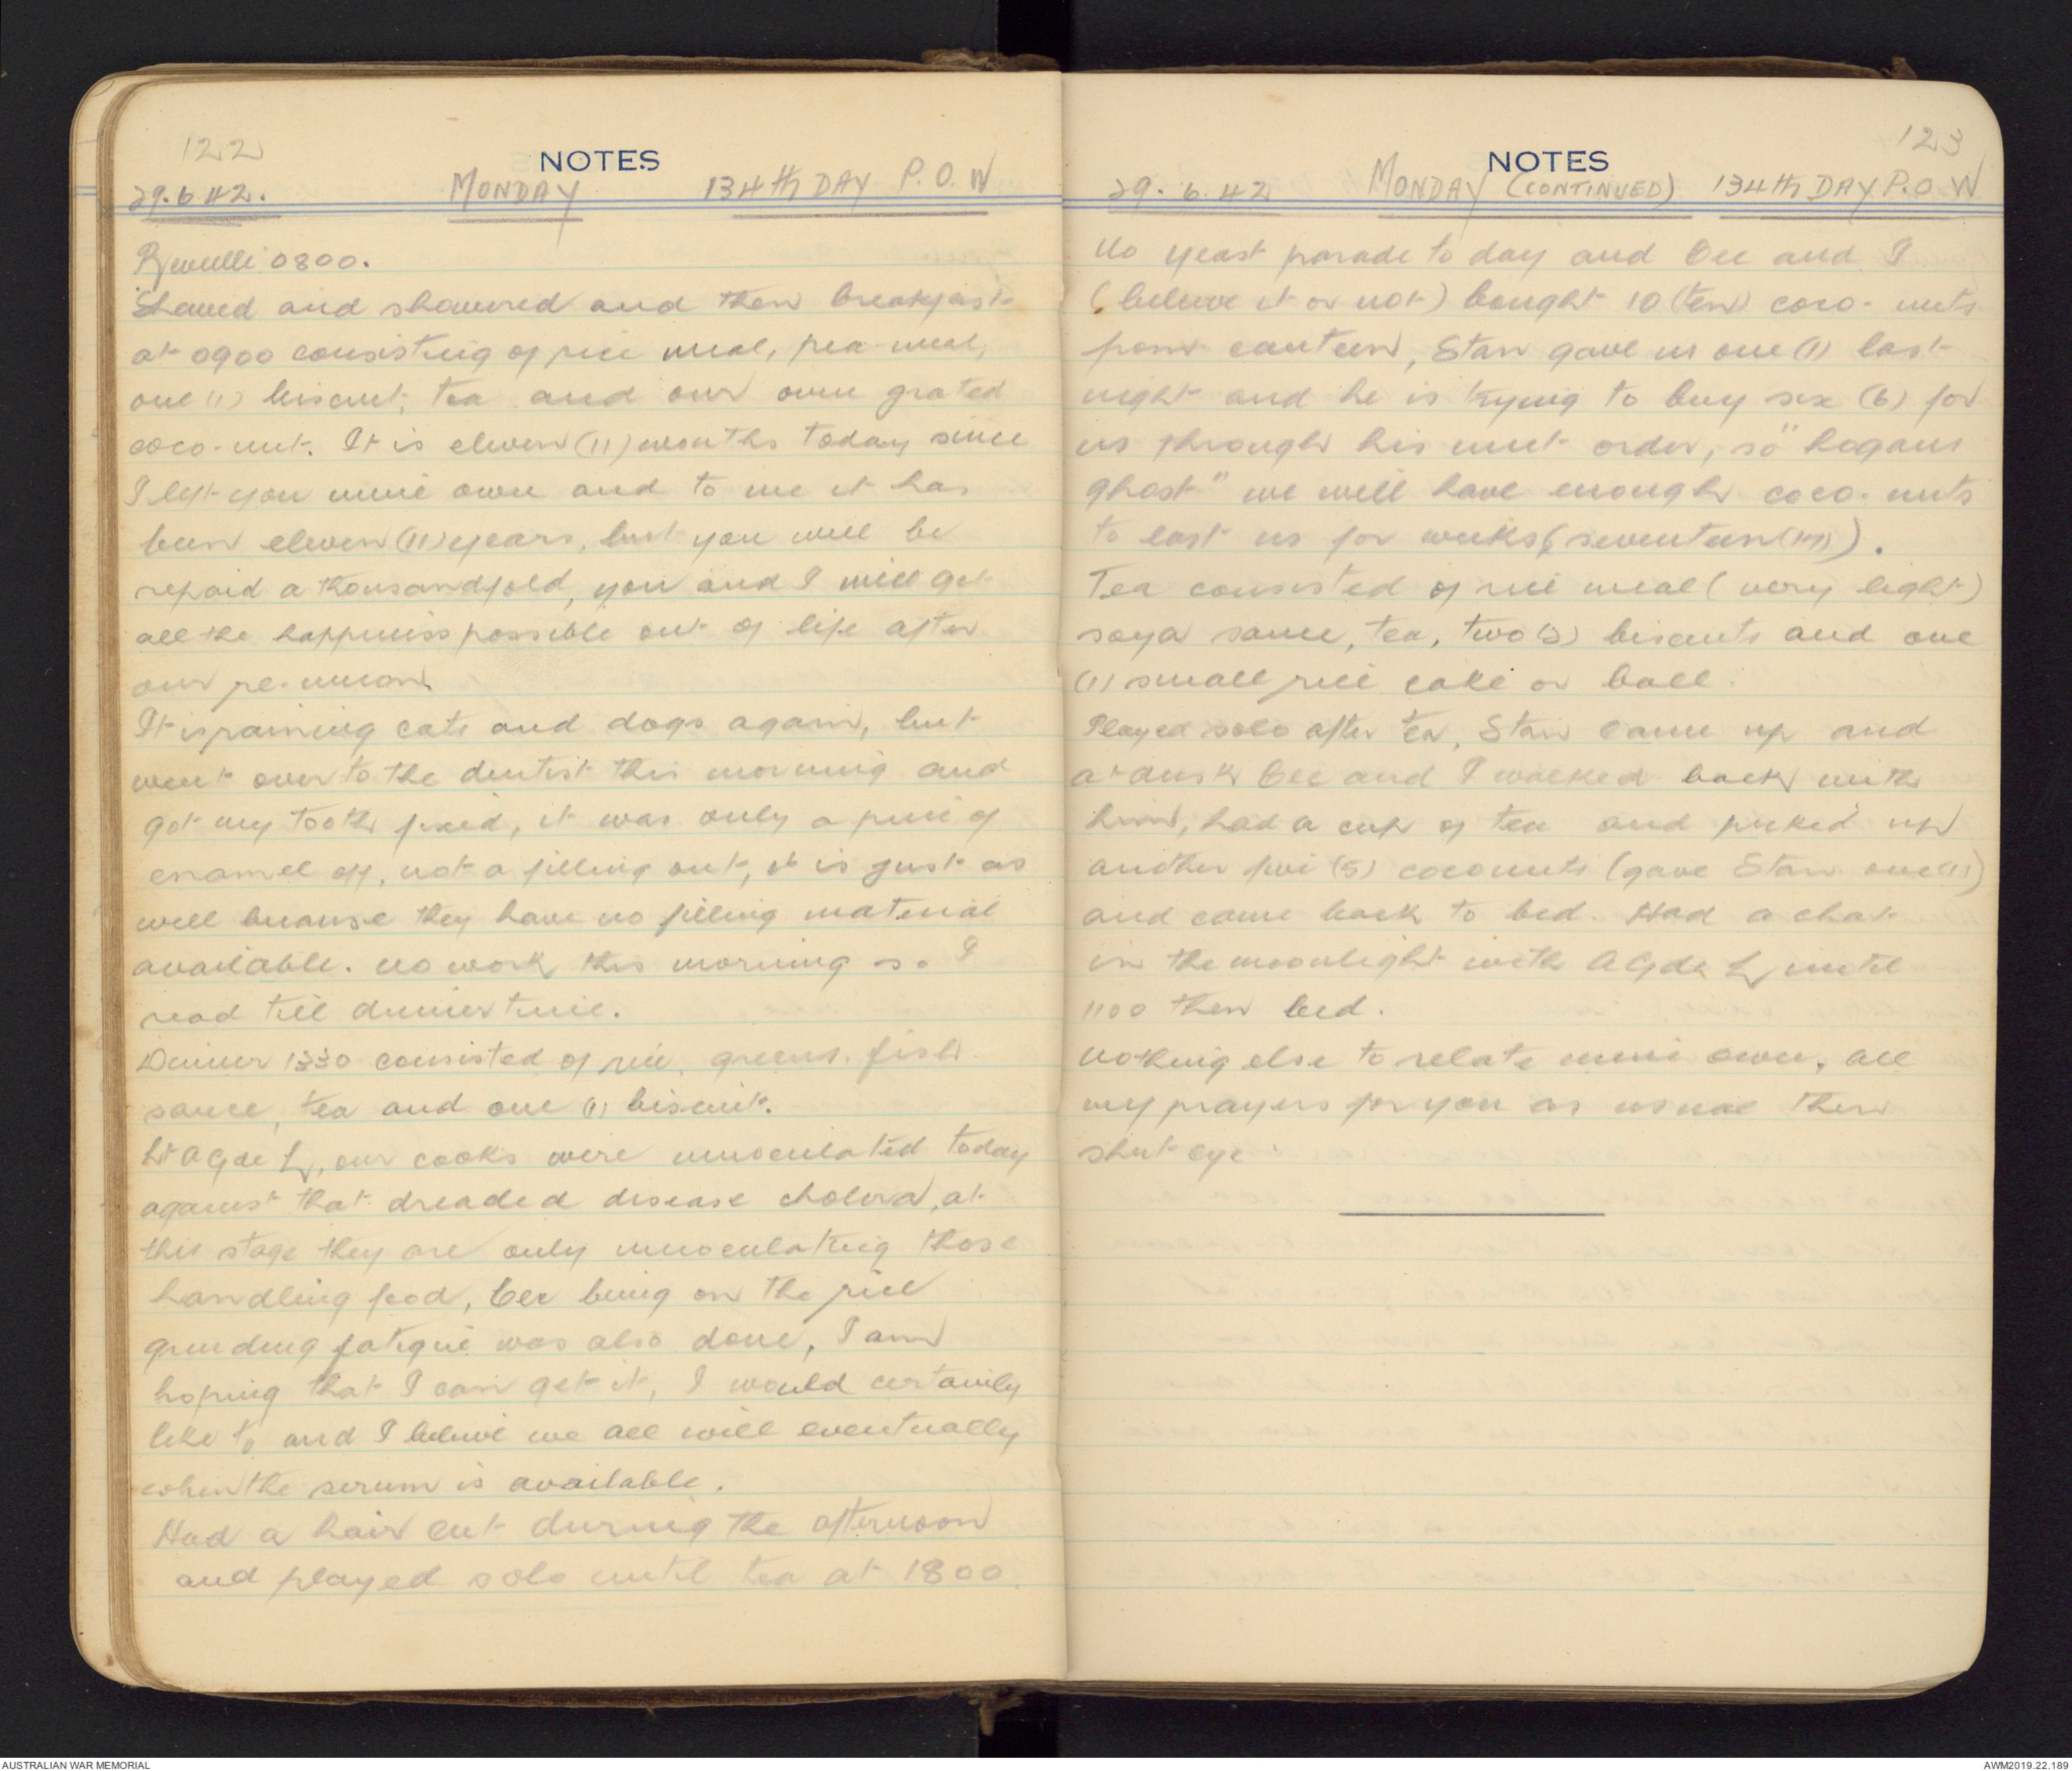 122
NOTES
29.6.42. MONDAY 134th DAY P.O.W
Reveille 0800.
Shaved and showered and then breakfast
at 0900 consisting of rice meal, pea-meal,
one (1) biscuit, tea and our own grated
coco-nut. It is eleven (11) months today since
I left you mine own and to me it has
been eleven (11) years, but you will be
repaid a thousandfold, you and I will get
all the happiness possible out of life after
our re-union.
It is raining cats and dogs again, but
went over to the dentist this morning and
got my tooth fixed, it was only a piece of
enamel off, not a filling out, it is just as
well because they have no filling material
available. No work this morning so I
read till dinner time.
Dinner 1330 consisted of rice, greens, fish
sauce, tea and one (1) biscuit.
Lt A G de L, our cooks were innoculated today
against that dreaded disease cholera, at
this stage they are only innoculating those
handling food, Cec being on the rice
grinding fatigue was also done, I am
hoping that I can get it, I would certainly
like to and I believe we all will eventually
when the serum is available.
Had a hair cut during the afternoon
and played solo until tea at 1800.
123
NOTES
29.6.42 MONDAY (CONTINUED) 134th DAY P.O.W
No yeast parade to day and Cec and I
(believe it or not) bought 10 (ten) coco-nuts
from canteen, Stan gave us one (1) last
night and he is trying to buy six (6) for
us through his unit order, so "hogans
ghost" we will have enough coco-nuts
to last us for weeks (seventeen (17)).
Tea consisted of rice meal (very light)
soya sauce, tea, two (2) biscuits and one
(1) small rice cake or ball.
Played solo after tea, Stan came up and
at dusk Cec and I walked back with
him, had a cup of tea and picked up
another five (5) coconuts (gave Stan one (1))
and came back to bed. Had a chat
in the moonlight with A G de L until
1100 then bed.
Nothing else to relate mine own, all
my prayers for you as usual then
shut eye.
AUSTRALIAN WAR MEMORIAL
AWM2019.22.189